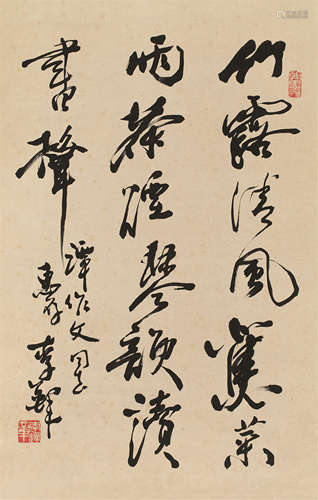 竹露清風蕉葉
雨茶煙琴韻讀
書聲
作文同志
惠存 李鐸